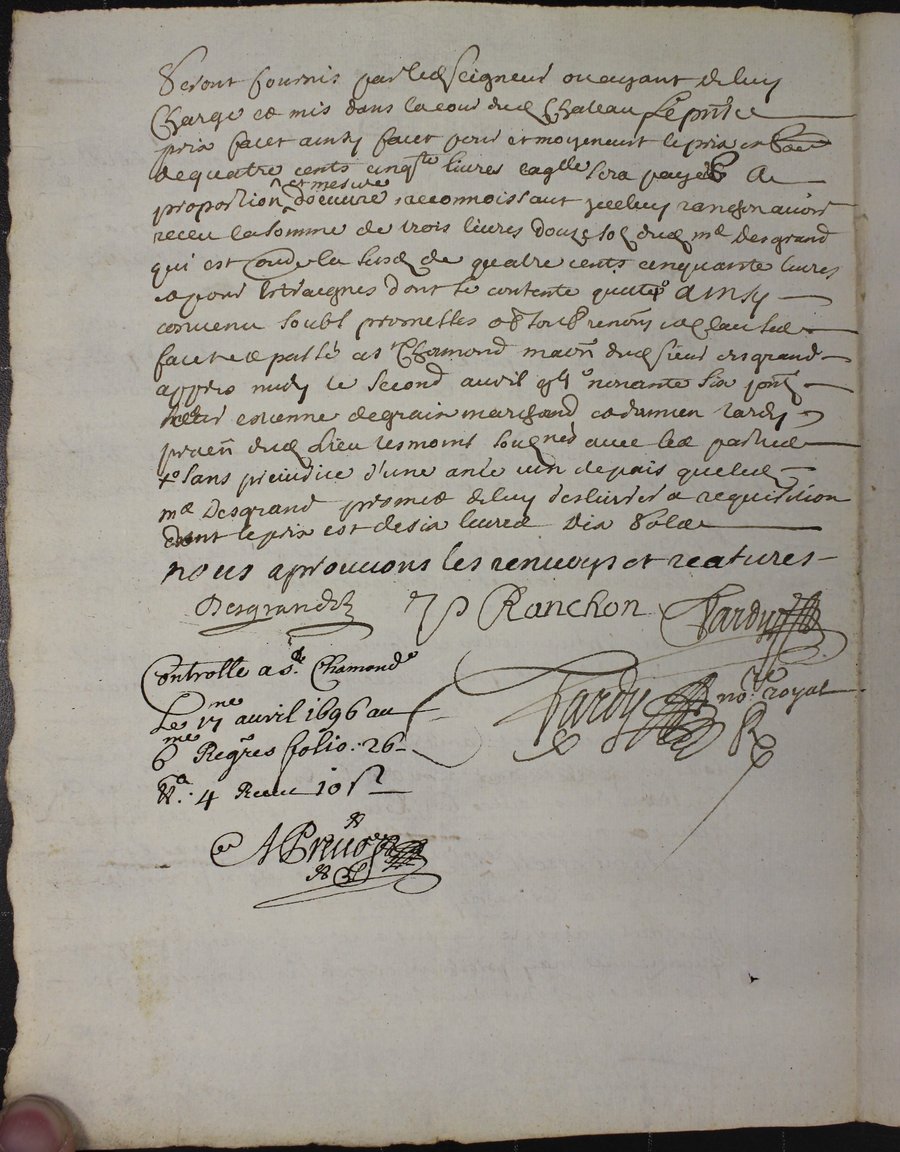 seront fournis par led seigneur ou ayant de luy
charge et mis dans la cour dud chateau Le pnt
prix facet ainsy facet pour et moyenant le prix et
de quatre cents cinqte livres laqlle sera payeé A
proportion et mesure doeuvre, reconnoissant yceluy ranchon avoir
receu la somme de trois livres douze sol dud mr Desgrand
qui est de la susd de quatre cents cinquante livres
et pour estraignes dont se contente quitte Ainsy
convenu soubt promettes obton renon clause
facet et passé a st Chamond maison dud sieur desgrand
appres midy le second avril nonante six pnt
sieur estienne degrain marchand et damien tardy
pracn dud lieu tesmoins soubsignes avec les parties
et sans prejudice d'une anée vin depais que led
mr Desgrand promet de luy deslivrer a requisition
dont le prix est de six livres dix sols
nous aprouvons les renvoys et ratures
Desgrand Ranchon Tardy
Controlle a st. Chamond
Le 17me avril 1696 au
6me Regres folio. 26
Na. 4 Receu 10 s
Tardy nore. royal R
APrivo